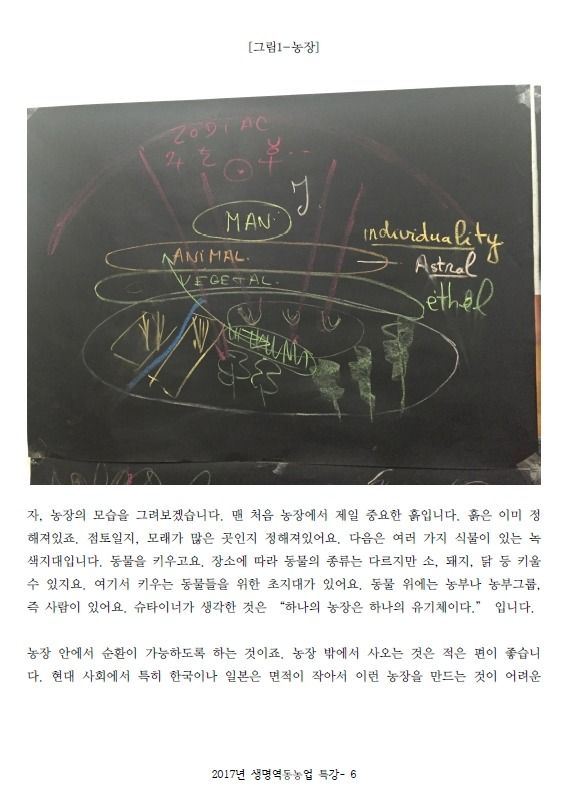 [그림1-농장]
ZODIAC
MAN
individuality
ANIMAL
Astral
VEGETAL
자, 농장의 모습을 그려보겠습니다. 맨 처음 농장에서 제일 중요한 흙입니다. 흙은 이미 정
해져있죠. 점토일지, 모래가 많은 곳인지 정해져있어요. 다음은 여러 가지 식물이 있는 녹
색지대입니다. 동물을 키우고요. 장소에 따라 동물의 종류는 다르지만 소, 돼지, 닭 등 키울
수 있지요. 여기서 키우는 동물들을 위한 초지대가 있어요. 동물 위에는 농부나 농부그룹,
즉 사람이 있어요. 슈타이너가 생각한 것은 “하나의 농장은 하나의 유기체이다.” 입니다.
농장 안에서 순환이 가능하도록 하는 것이죠. 농장 밖에서 사오는 것은 적은 편이 좋습니
다. 현대 사회에서 특히 한국이나 일본은 면적이 작아서 이런 농장을 만드는 것이 어려운
2017년 생명역동농업 특강- 6